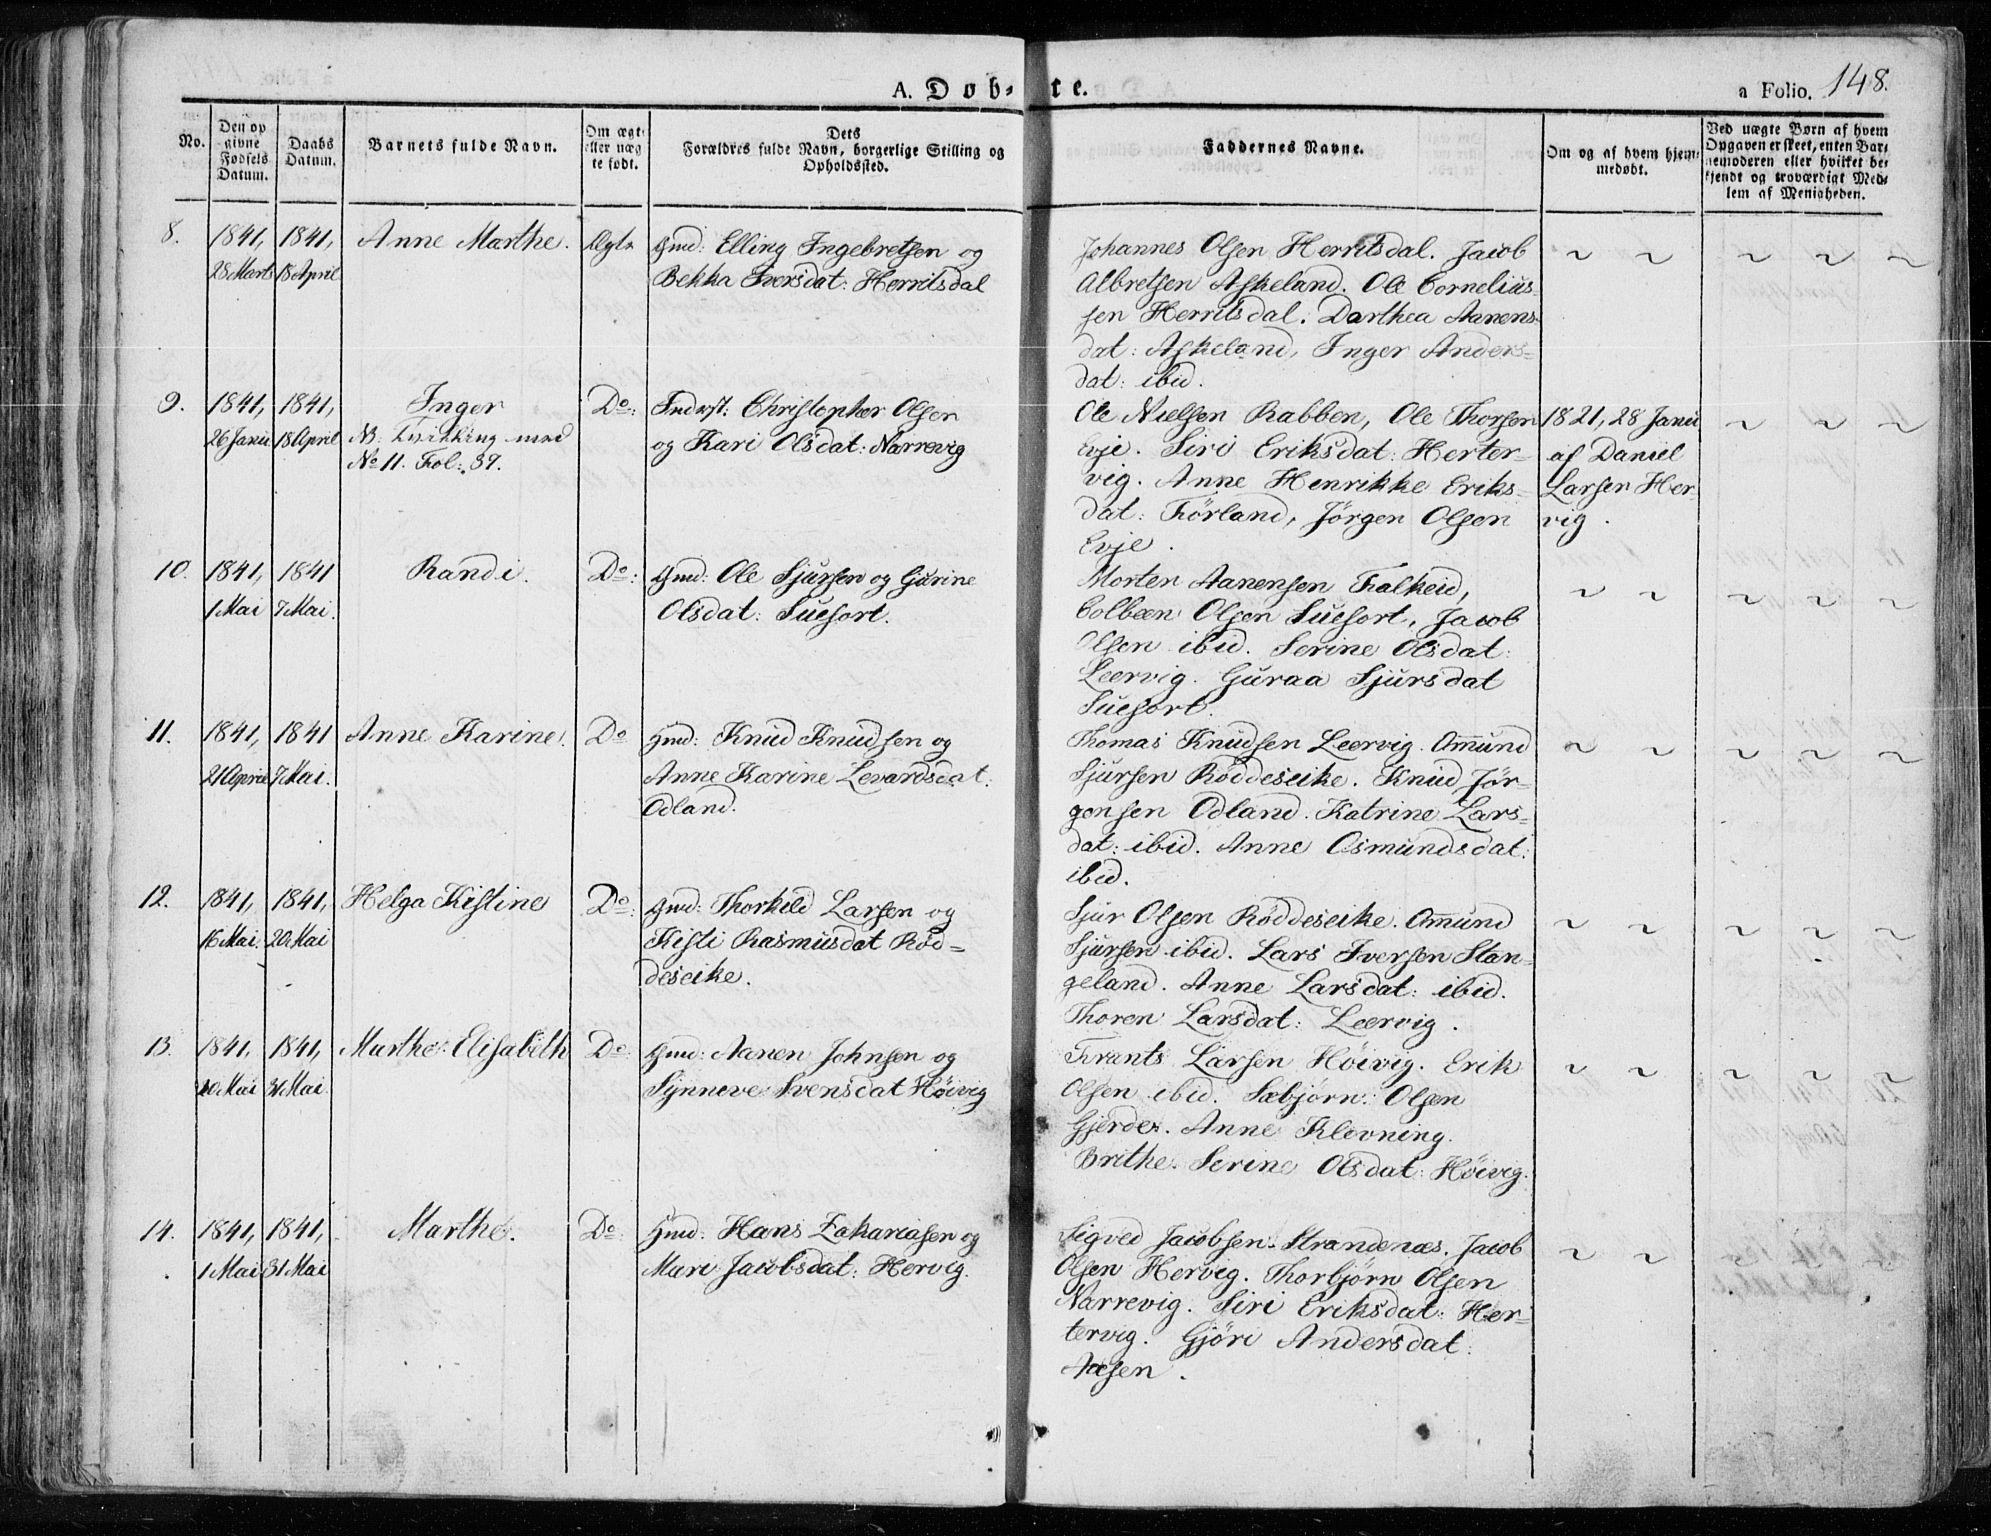 A. Døb-
te.
a Folio. 148.
No.
Den op
givne
Fødsels
Datum.
Daabs
Datum.
Barnets fulde Navn.
Om ægt-
eller uæg
te født.
Dets
Forældres fulde Navn, borgerlige Stilling og
Opholdssted.
Faddernes Navne.
Om og af hvem hjem-
medøbt.
Ved uægte Børn af hvem
Opgaven er skeet, enten Bar-
nemoderen eller hvilket be-
kjendt og troværdigt Med-
lem af Menigheden.
8. 1841, 1841, Anne Marthe. Ægte Gmd: Elling Ingebretsen og
28 Marts 18 April Bekka Iversdat: Herritsdal
Johannes Olsen Herritsdal. Jacob
Albretsen Askeland. Ole Cornelius-
sen Herritsdal. Darthea Aanens-
dat: Askeland, Inger Anders-
dat: ibid.
9. 1841, 1841, Inger Do: Inderst: Christopher Olsen
26 Janu 18 April NB: Tvilling med og Kari Olsdat: Narrevig
No 11. Fol: 39.
Ole Nielsen Rabben, Ole Thorsen 1821, 28 Janu
Evje. Siri Eriksdat: Herter- af Daniel
vig. Anne Henrikke Eriks- Larsen Her
dat: Førland, Jörgen Olsen vig.
Evje.
10. 1841, 1841 Randi. Do: Gmd: Ole Sjursen og Gurine
1 Mai 7 Mai. Olsdat: Suesort.
Morten Aanensen Falkeid,
Colbeen Olsen Suesort, Jacob
Olsen ibid. Serine Olsdat:
Leervig. Guraa Sjursdat
Suesort.
11. 1841, 1841 Anne Karine. Do Gmd: Knud Knudsen og
21 April 7 Mai. Anne Karine Levardsdat:
Odland.
Thomas Knudsen Leervig. Omund
Sjursen Röddeseike. Knud Jør-
gensen Odland. Katrine Lars-
dat: ibid. Anne Osmundsdat:
ibid.
12. 1841, 1841, Helga Kistine Do: Gmd: Thorkild Larsen og
16 Mai. 20 Mai Kisti Rasmusdat Röd-
deseike.
Sjur Olsen Röddeseike. Omund
Sjursen ibid. Lars Iversen Stan-
geland. Anne Larsdat: ibid.
Thoren Larsdat: Leervig.
13. 1841, 1841, Marthe Elisabeth Do: Gmd: Aanen Johnsen og
Mai 31 Mai. Synneve Svensdat Höivig
Frants Larsen Höivig. Erik
Olsen ibid. Sæbjørn Olsen
Gjerde. Anne Klovning.
Brithe Serine Olsdat: Höivig.
14. 1841, 1841, Marthe. Do: Gmd: Hans Zakariasen og
1 Mai 31 Mai Mari Jacobsdat: Hervig.
Sigved Jacobsen Strandenæs. Jacob
Olsen Hervig. Thorbjørn Olsen
Narrevig. Siri Eriksdat: Her-
tervig. Gjöri Andersdat: